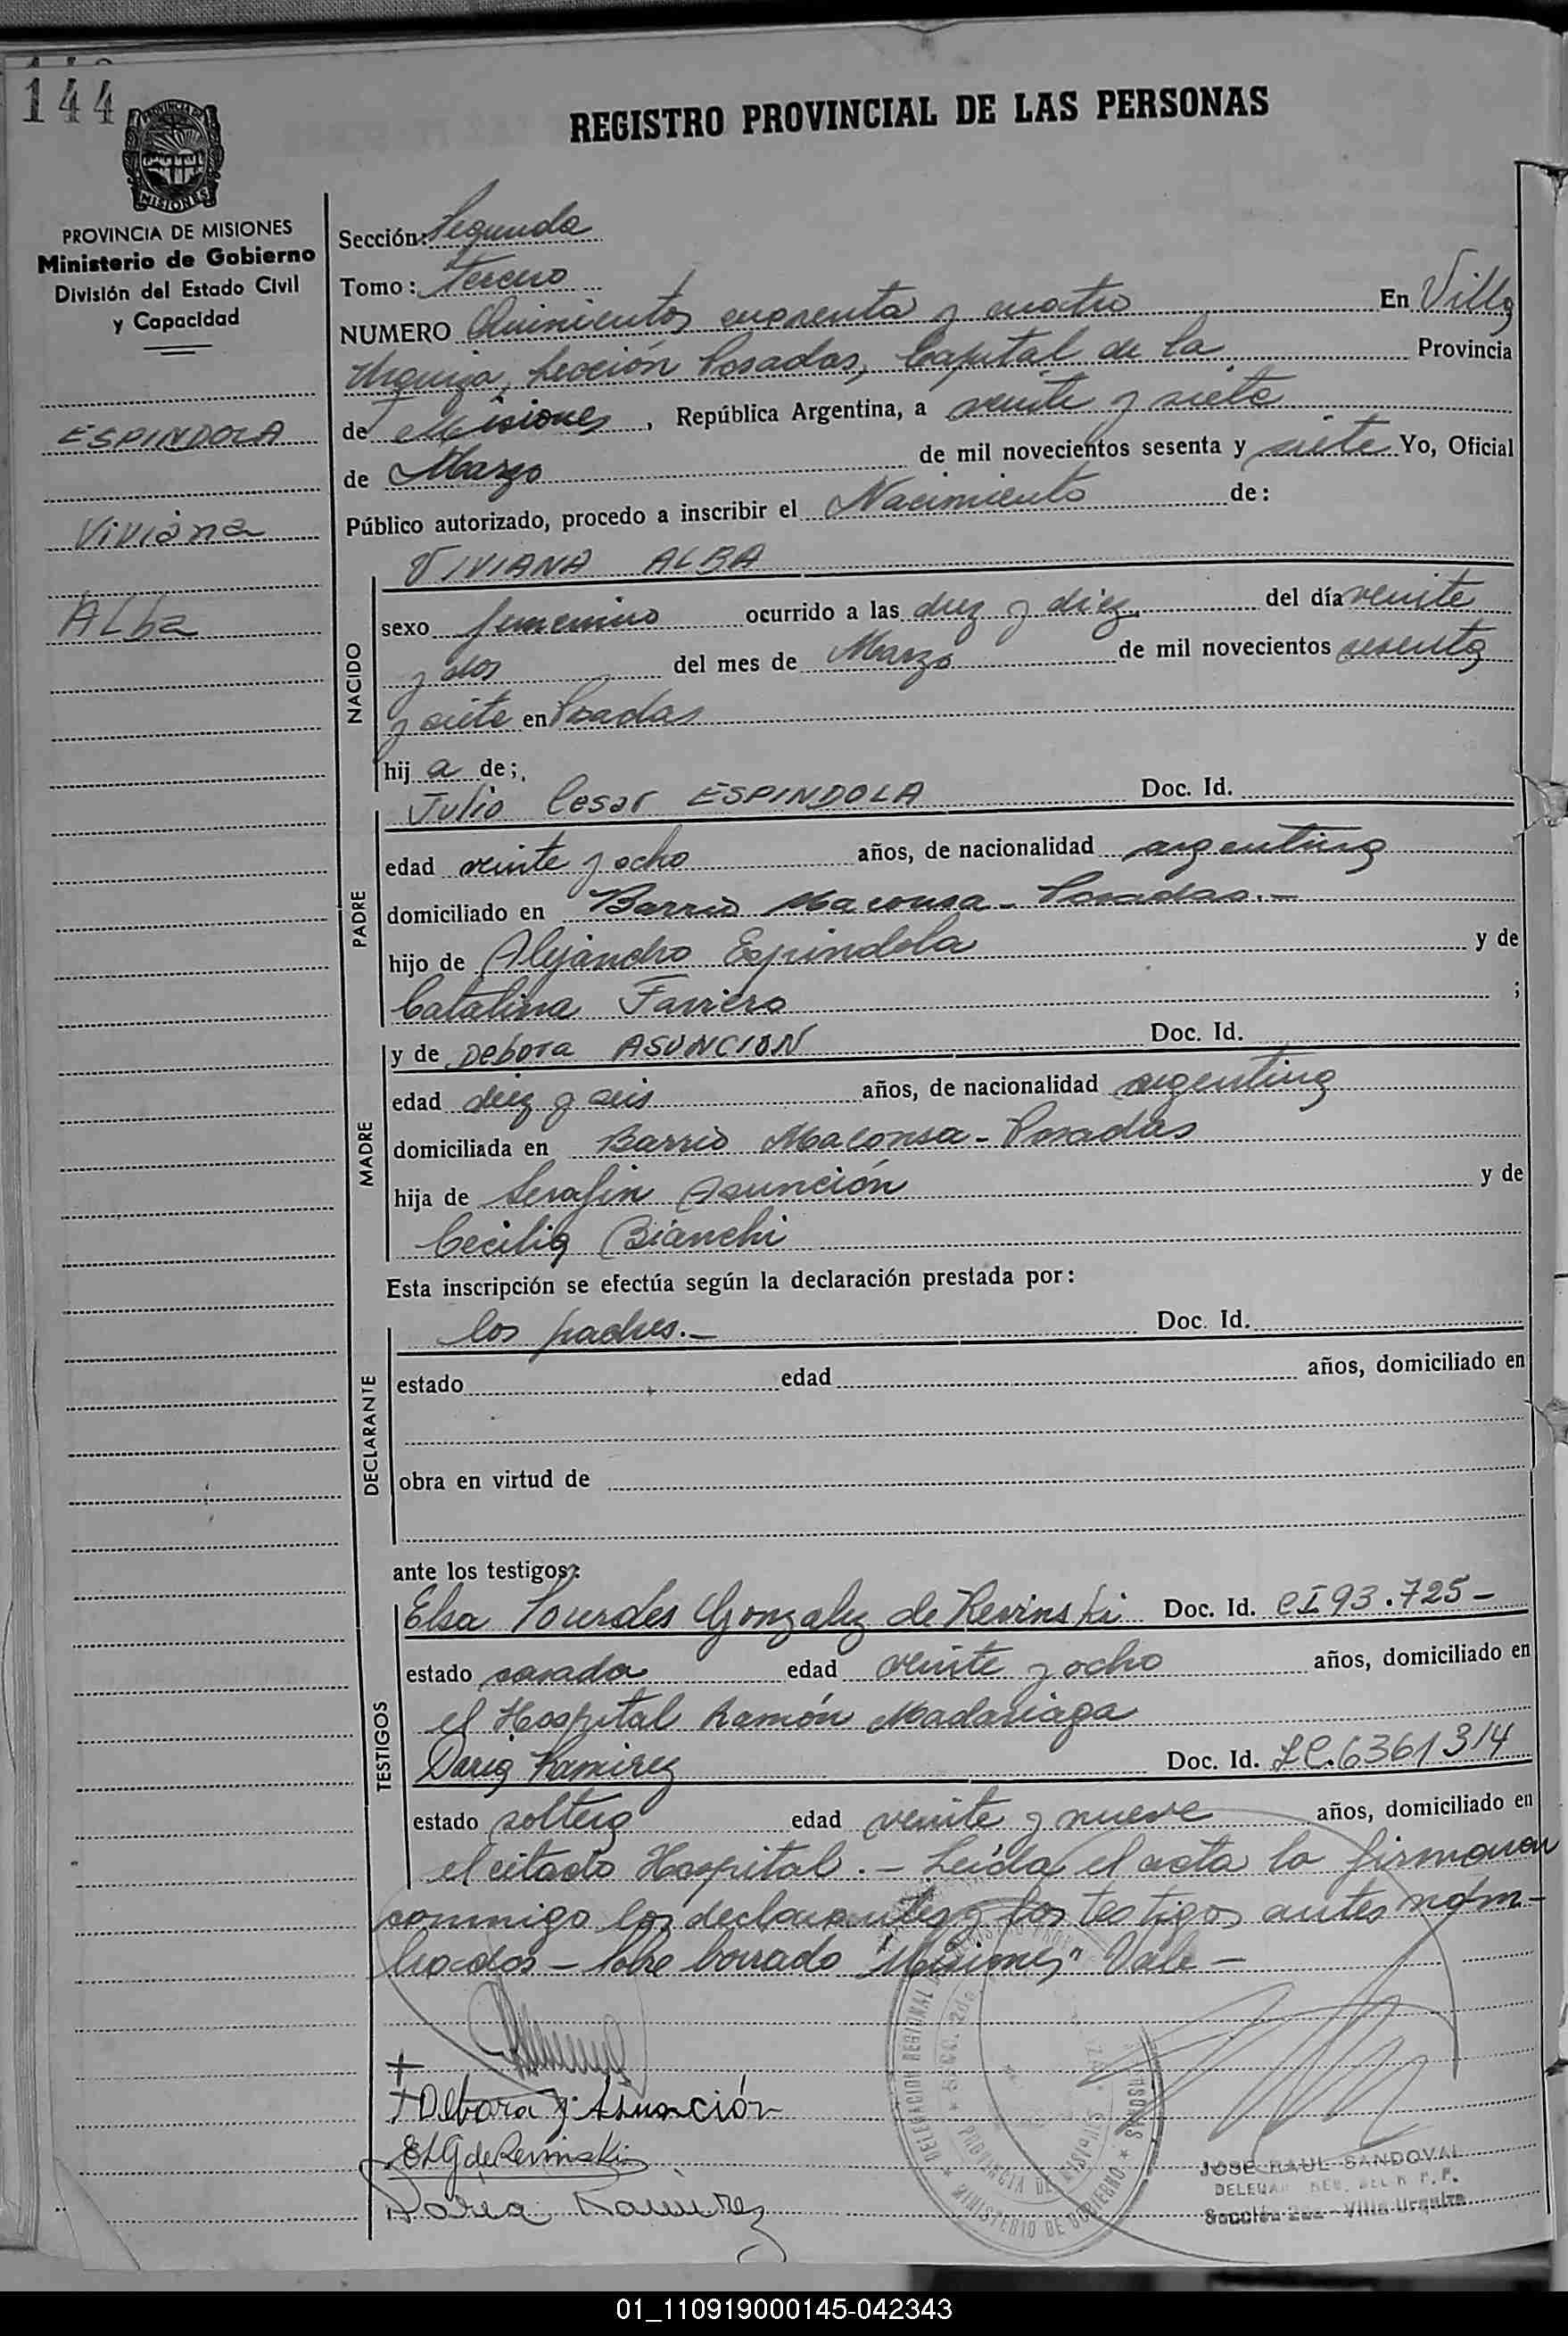 144
REGISTRO PROVINCIAL DE LAS PERSONAS
MISIONES
PROVINCIA DE MISIONES
Ministerio de Gobierno
División del Estado Civil
y Capacidad
ESPINDOLA
Viviana
ALba
Sección: Segunda
Tomo: tercero
NUMERO Quinientos cuarenta y cuatro En Villa
Urquiza, Sección Posadas, Capital de la Provincia
de Misiones, República Argentina, a veinte y siete
de Marzo de mil novecientos sesenta y siete Yo, Oficial
Público autorizado, procedo a inscribir el Nacimiento de:
VIVIANA ALBA
NACIDO
sexo femenino ocurrido a las diez y diez del día veinte
y dos del mes de Marzo de mil novecientos sesenta
y siete en Posadas
hij a de;
PADRE
Julio Cesar ESPINDOLA Doc. Id.
edad veinte y ocho años, de nacionalidad argentina
domiciliado en Barrio Maconsa - Posadas.-
hijo de Alejandro Espindola y de
Catalina Farriero ;
MADRE
y de Debora ASUNCION Doc. Id.
edad diez y seis años, de nacionalidad argentina
domiciliada en Barrio Maconsa - Posadas
hija de Serafin Asunción y de
Cecilia Bianchi
Esta inscripción se efectúa según la declaración prestada por:
DECLARANTE
los padres.- Doc. Id.
estado edad años, domiciliado en
obra en virtud de
ante los testigos:
TESTIGOS
Elsa Lourdes Gonzalez de Revinski Doc. Id. CI 93.725-
estado casada edad veinte y ocho años, domiciliado en
el Hospital Ramón Madariaga
Daria Ramirez Doc. Id. LC.6361314
estado soltera edad veinte y nueve años, domiciliado en
el citado Hospital.- Leída el acta la firmaron
conmigo los declarantes y los testigos antes nom-
brados - Sobre borrado "Misiones" Vale -
+
+ Debora J. Asunción
ELG de Revinski
Daria Ramirez
DELEGACION REGIONAL
SECC. 2da
PROVINCIA DE MISIONES
MINISTERIO DE GOBIERNO
JOSE RAUL SANDOVAL
DELEGAD REG. DEL R P. P.
Sección 2da - Villa Urquiza
01_110919000145-042343